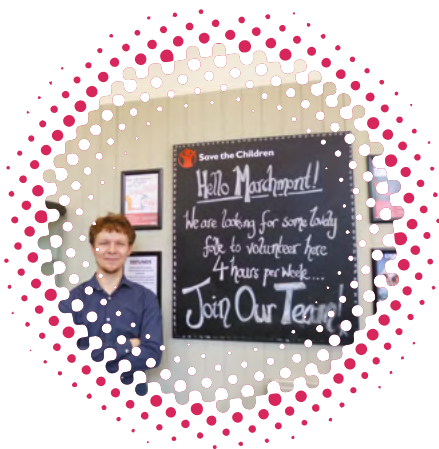 Save the Children
Hello Marchmont!
We are looking for some lovely
folk to volunteer here
4 hours per week...
Join Our Team!
REFUNDS